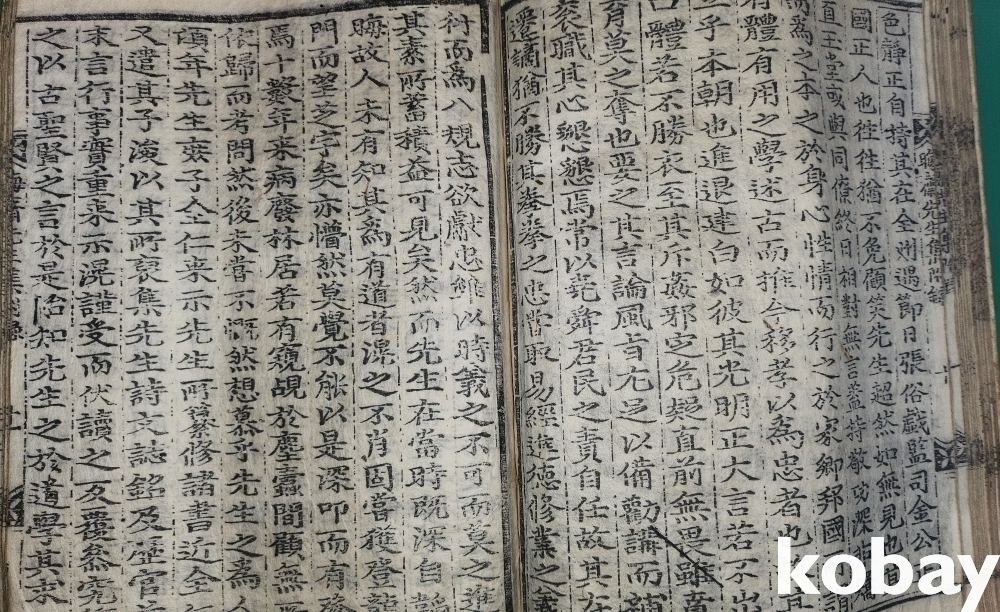 色靜正自持其在全州遇節日張俗戲監司金公
國正人也往往猶不免顧笑先生超然如無見也
直玉堂或與同僚終日相對無言蓋持敬功深
而爲之本之於身心性情而行之於家鄕邦國
有體有用之學述古而推今移孝以爲忠者也
立乎本朝也進退建白如彼其光明正大言若不出
口體若不勝衣至其斥姦邪定危疑直前無畏雖賁
育莫之奪也要之其言論風旨尤足以備勸講而補
袞職其心懇懇焉常以堯舜君民之責自任故其在
遷謫猶不勝其拳拳之忠嘗取易經進德修業之義
衍而爲八規志欲獻忠雖以時義之不可而莫之進
其素所蓄積益可見矣然而先生在當時旣深自
晦故人未有知其爲有道者滉之不肖固嘗獲登龍
門而望芝宇矣亦懵然莫覺不能以是深叩而有發
焉十數年來病廢林居若有窺覘於塵蠹間顧無
依歸而考問然後未嘗不慨然想慕乎先生之爲人
頃年先生庶子全仁來示先生所纂修諸書近全仁
又遣其子浚以其所裒集先生詩文誌銘及歷官
末言行事實重來示滉謹受而伏讀之反覆參究
之以古聖賢之言於是始知先生之於道學其求
kobay